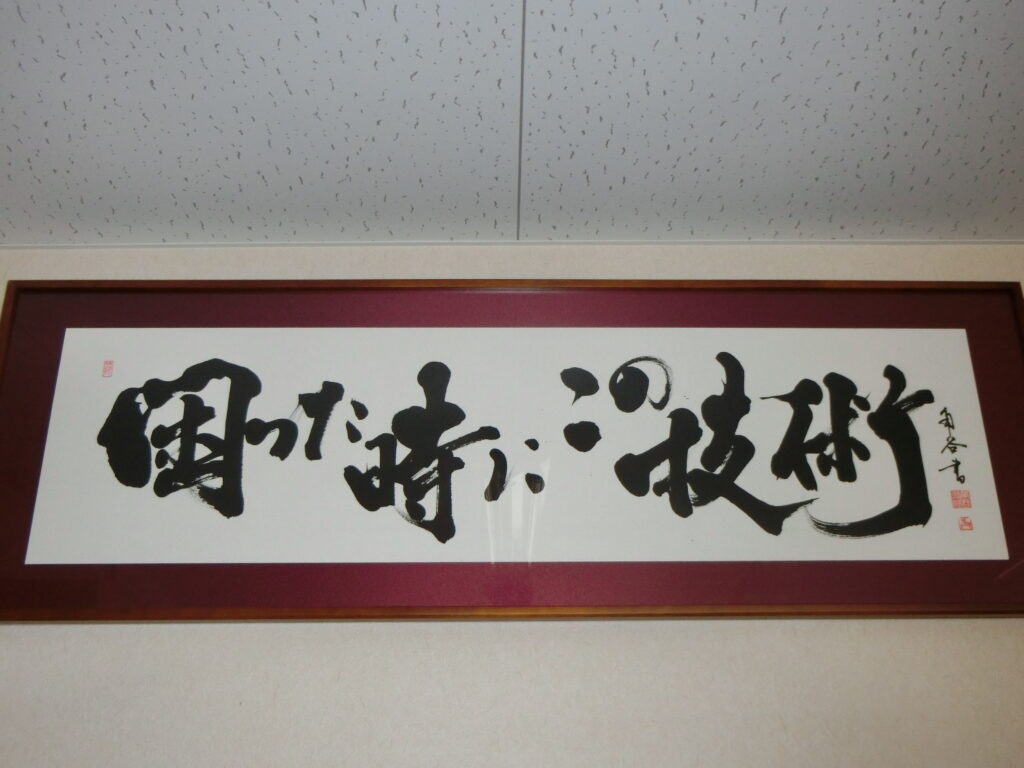 困った時にこの技術
角谷書